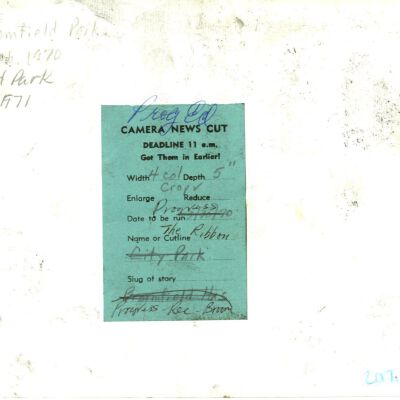 Park
1970
Park
1971
Prog Ed
CAMERA NEWS CUT
DEADLINE 11 a.m.
Get Them in Earlier!
Width 4 col Depth 5"
Crop
Enlarge Reduce
Progress
Date to be run
The Ribbon
Name or Cutline
City Park
Slug of story
Broomfield
Progress - Rec - Broom